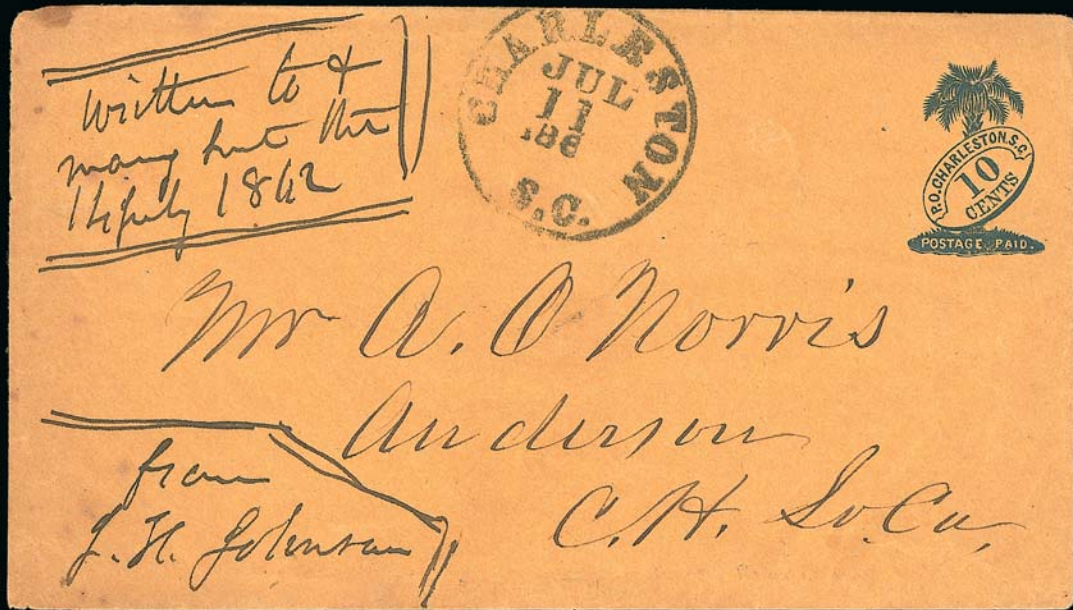 written to &
14 July 1862
CHARLESTON
JUL
11
S.C.
P.O. CHARLESTON. S.C.
10
CENTS
POSTAGE PAID.
Mr A. O Norris
Anderson
C.H. So. Ca,
from
J. H. Johnson